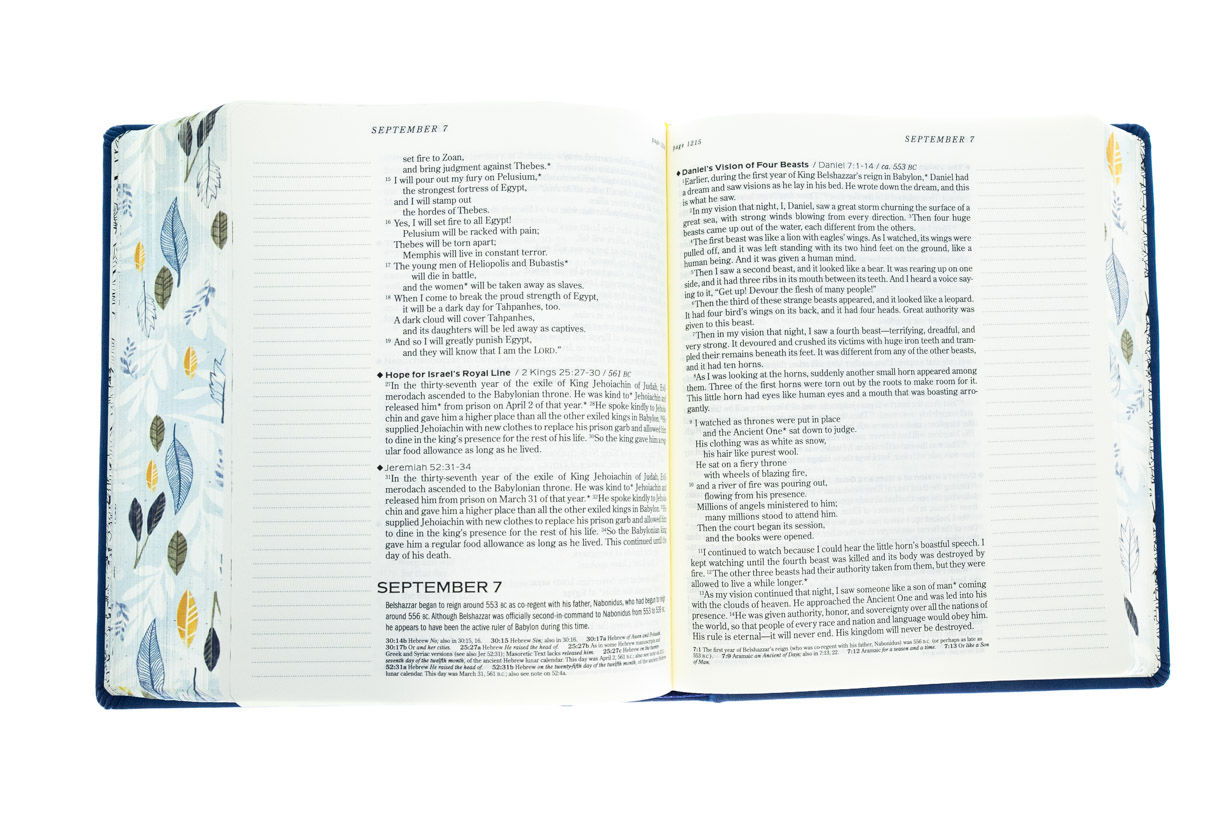 SEPTEMBER 7
set fire to Zoan,
and bring judgment against Thebes.*
15 I will pour out my fury on Pelusium,*
the strongest fortress of Egypt,
and I will stamp out
the hordes of Thebes.
16 Yes, I will set fire to all Egypt!
Pelusium will be racked with pain;
Thebes will be torn apart;
Memphis will live in constant terror.
17 The young men of Heliopolis and Bubastis*
will die in battle,
and the women* will be taken away as slaves.
18 When I come to break the proud strength of Egypt,
it will be a dark day for Tahpanhes, too.
A dark cloud will cover Tahpanhes,
and its daughters will be led away as captives.
19 And so I will greatly punish Egypt,
and they will know that I am the LORD."
◆ Hope for Israel's Royal Line / 2 Kings 25:27-30 / 561 BC
27In the thirty-seventh year of the exile of King Jehoiachin of Judah,
merodach ascended to the Babylonian throne. He was kind to* Jehoiachin and
released him* from prison on April 2 of that year.* 28He spoke kindly to Jehoia-
chin and gave him a higher place than all the other exiled kings in Babylon.
supplied Jehoiachin with new clothes to replace his prison garb and allowed him
to dine in the king's presence for the rest of his life. 30So the king gave him a reg-
ular food allowance as long as he lived.
◆ Jeremiah 52:31-34
31In the thirty-seventh year of the exile of King Jehoiachin of Judah,
merodach ascended to the Babylonian throne. He was kind to* Jehoiachin and
released him from prison on March 31 of that year.* 32He spoke kindly to Jehoia-
chin and gave him a higher place than all the other exiled kings in Babylon.
supplied Jehoiachin with new clothes to replace his prison garb and allowed him
to dine in the king's presence for the rest of his life. 34So the Babylonian king
gave him a regular food allowance as long as he lived. This continued until the
day of his death.
SEPTEMBER 7
Belshazzar began to reign around 553 BC as co-regent with his father, Nabonidus, who had begun to reign
around 556 BC. Although Belshazzar was officially second-in-command to Nabonidus from 553 to
he appears to have been the active ruler of Babylon during this time.
30:14b Hebrew No; also in 30:15, 16. 30:15 Hebrew Sin; also in 30:16. 30:17a Hebrew of Awen and
30:17b Or and her cities. 25:27a Hebrew He raised the head of. 25:27b As in some Hebrew manuscripts and
Greek and Syriac versions (see also Jer 52:31); Masoretic Text lacks released him. 25:27c Hebrew on the twenty-
seventh day of the twelfth month, of the ancient Hebrew lunar calendar. This day was April 2, 561 B.C.; also see note on
52:31a Hebrew He raised the head of. 52:31b Hebrew on the twenty-fifth day of the twelfth month, of the ancient Hebrew
lunar calendar. This day was March 31, 561 B.C.; also see note on 52:4a.
page 1215
SEPTEMBER 7
◆ Daniel's Vision of Four Beasts / Daniel 7:1-14 / ca. 553 BC
1Earlier, during the first year of King Belshazzar's reign in Babylon,* Daniel had
a dream and saw visions as he lay in his bed. He wrote down the dream, and this
is what he saw.
2In my vision that night, I, Daniel, saw a great storm churning the surface of a
great sea, with strong winds blowing from every direction. 3Then four huge
beasts came up out of the water, each different from the others.
4The first beast was like a lion with eagles' wings. As I watched, its wings were
pulled off, and it was left standing with its two hind feet on the ground, like a
human being. And it was given a human mind.
5Then I saw a second beast, and it looked like a bear. It was rearing up on one
side, and it had three ribs in its mouth between its teeth. And I heard a voice say-
ing to it, "Get up! Devour the flesh of many people!"
6Then the third of these strange beasts appeared, and it looked like a leopard.
It had four bird's wings on its back, and it had four heads. Great authority was
given to this beast.
7Then in my vision that night, I saw a fourth beast—terrifying, dreadful, and
very strong. It devoured and crushed its victims with huge iron teeth and tram-
pled their remains beneath its feet. It was different from any of the other beasts,
and it had ten horns.
8As I was looking at the horns, suddenly another small horn appeared among
them. Three of the first horns were torn out by the roots to make room for it.
This little horn had eyes like human eyes and a mouth that was boasting arro-
gantly.
9 I watched as thrones were put in place
and the Ancient One* sat down to judge.
His clothing was as white as snow,
his hair like purest wool.
He sat on a fiery throne
with wheels of blazing fire,
10 and a river of fire was pouring out,
flowing from his presence.
Millions of angels ministered to him;
many millions stood to attend him.
Then the court began its session,
and the books were opened.
11I continued to watch because I could hear the little horn's boastful speech. I
kept watching until the fourth beast was killed and its body was destroyed by
fire. 12The other three beasts had their authority taken from them, but they were
allowed to live a while longer.*
13As my vision continued that night, I saw someone like a son of man* coming
with the clouds of heaven. He approached the Ancient One and was led into his
presence. 14He was given authority, honor, and sovereignty over all the nations of
the world, so that people of every race and nation and language would obey him.
His rule is eternal—it will never end. His kingdom will never be destroyed.
7:1 The first year of Belshazzar's reign (who was co-regent with his father, Nabonidus) was 556 B.C. (or perhaps as late as
553 B.C.). 7:9 Aramaic an Ancient of Days; also in 7:13, 22. 7:12 Aramaic for a season and a time. 7:13 Or like a Son
of Man.